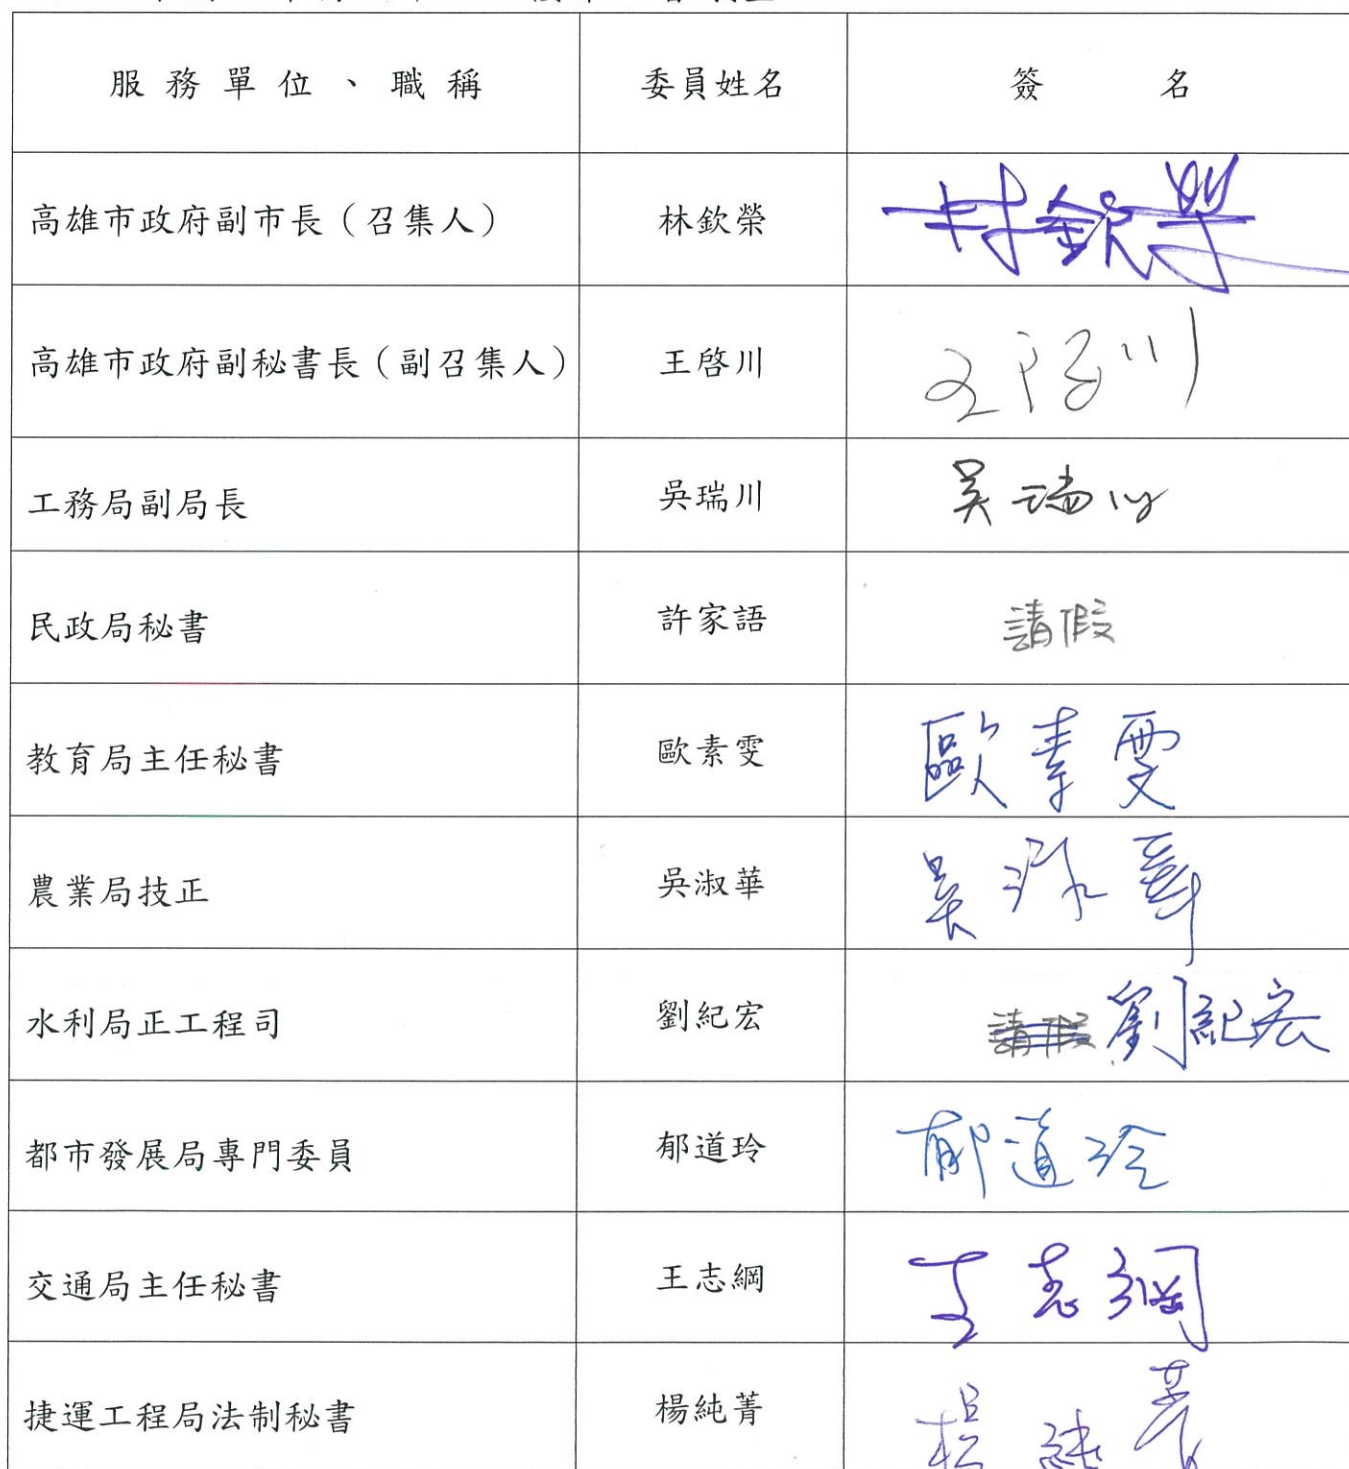 服務單位、職稱 委員姓名 簽名
高雄市政府副市長（召集人） 林欽榮 林欽榮
高雄市政府副秘書長（副召集人） 王啓川 王啓川
工務局副局長 吳瑞川 吳瑞川
民政局秘書 許家語 請假
教育局主任秘書 歐素雯 歐素雯
農業局技正 吳淑華 吳淑華
水利局正工程司 劉紀宏 請假 劉紀宏
都市發展局專門委員 郁道玲 郁道玲
交通局主任秘書 王志綱 王志綱
捷運工程局法制秘書 楊純菁 楊純菁